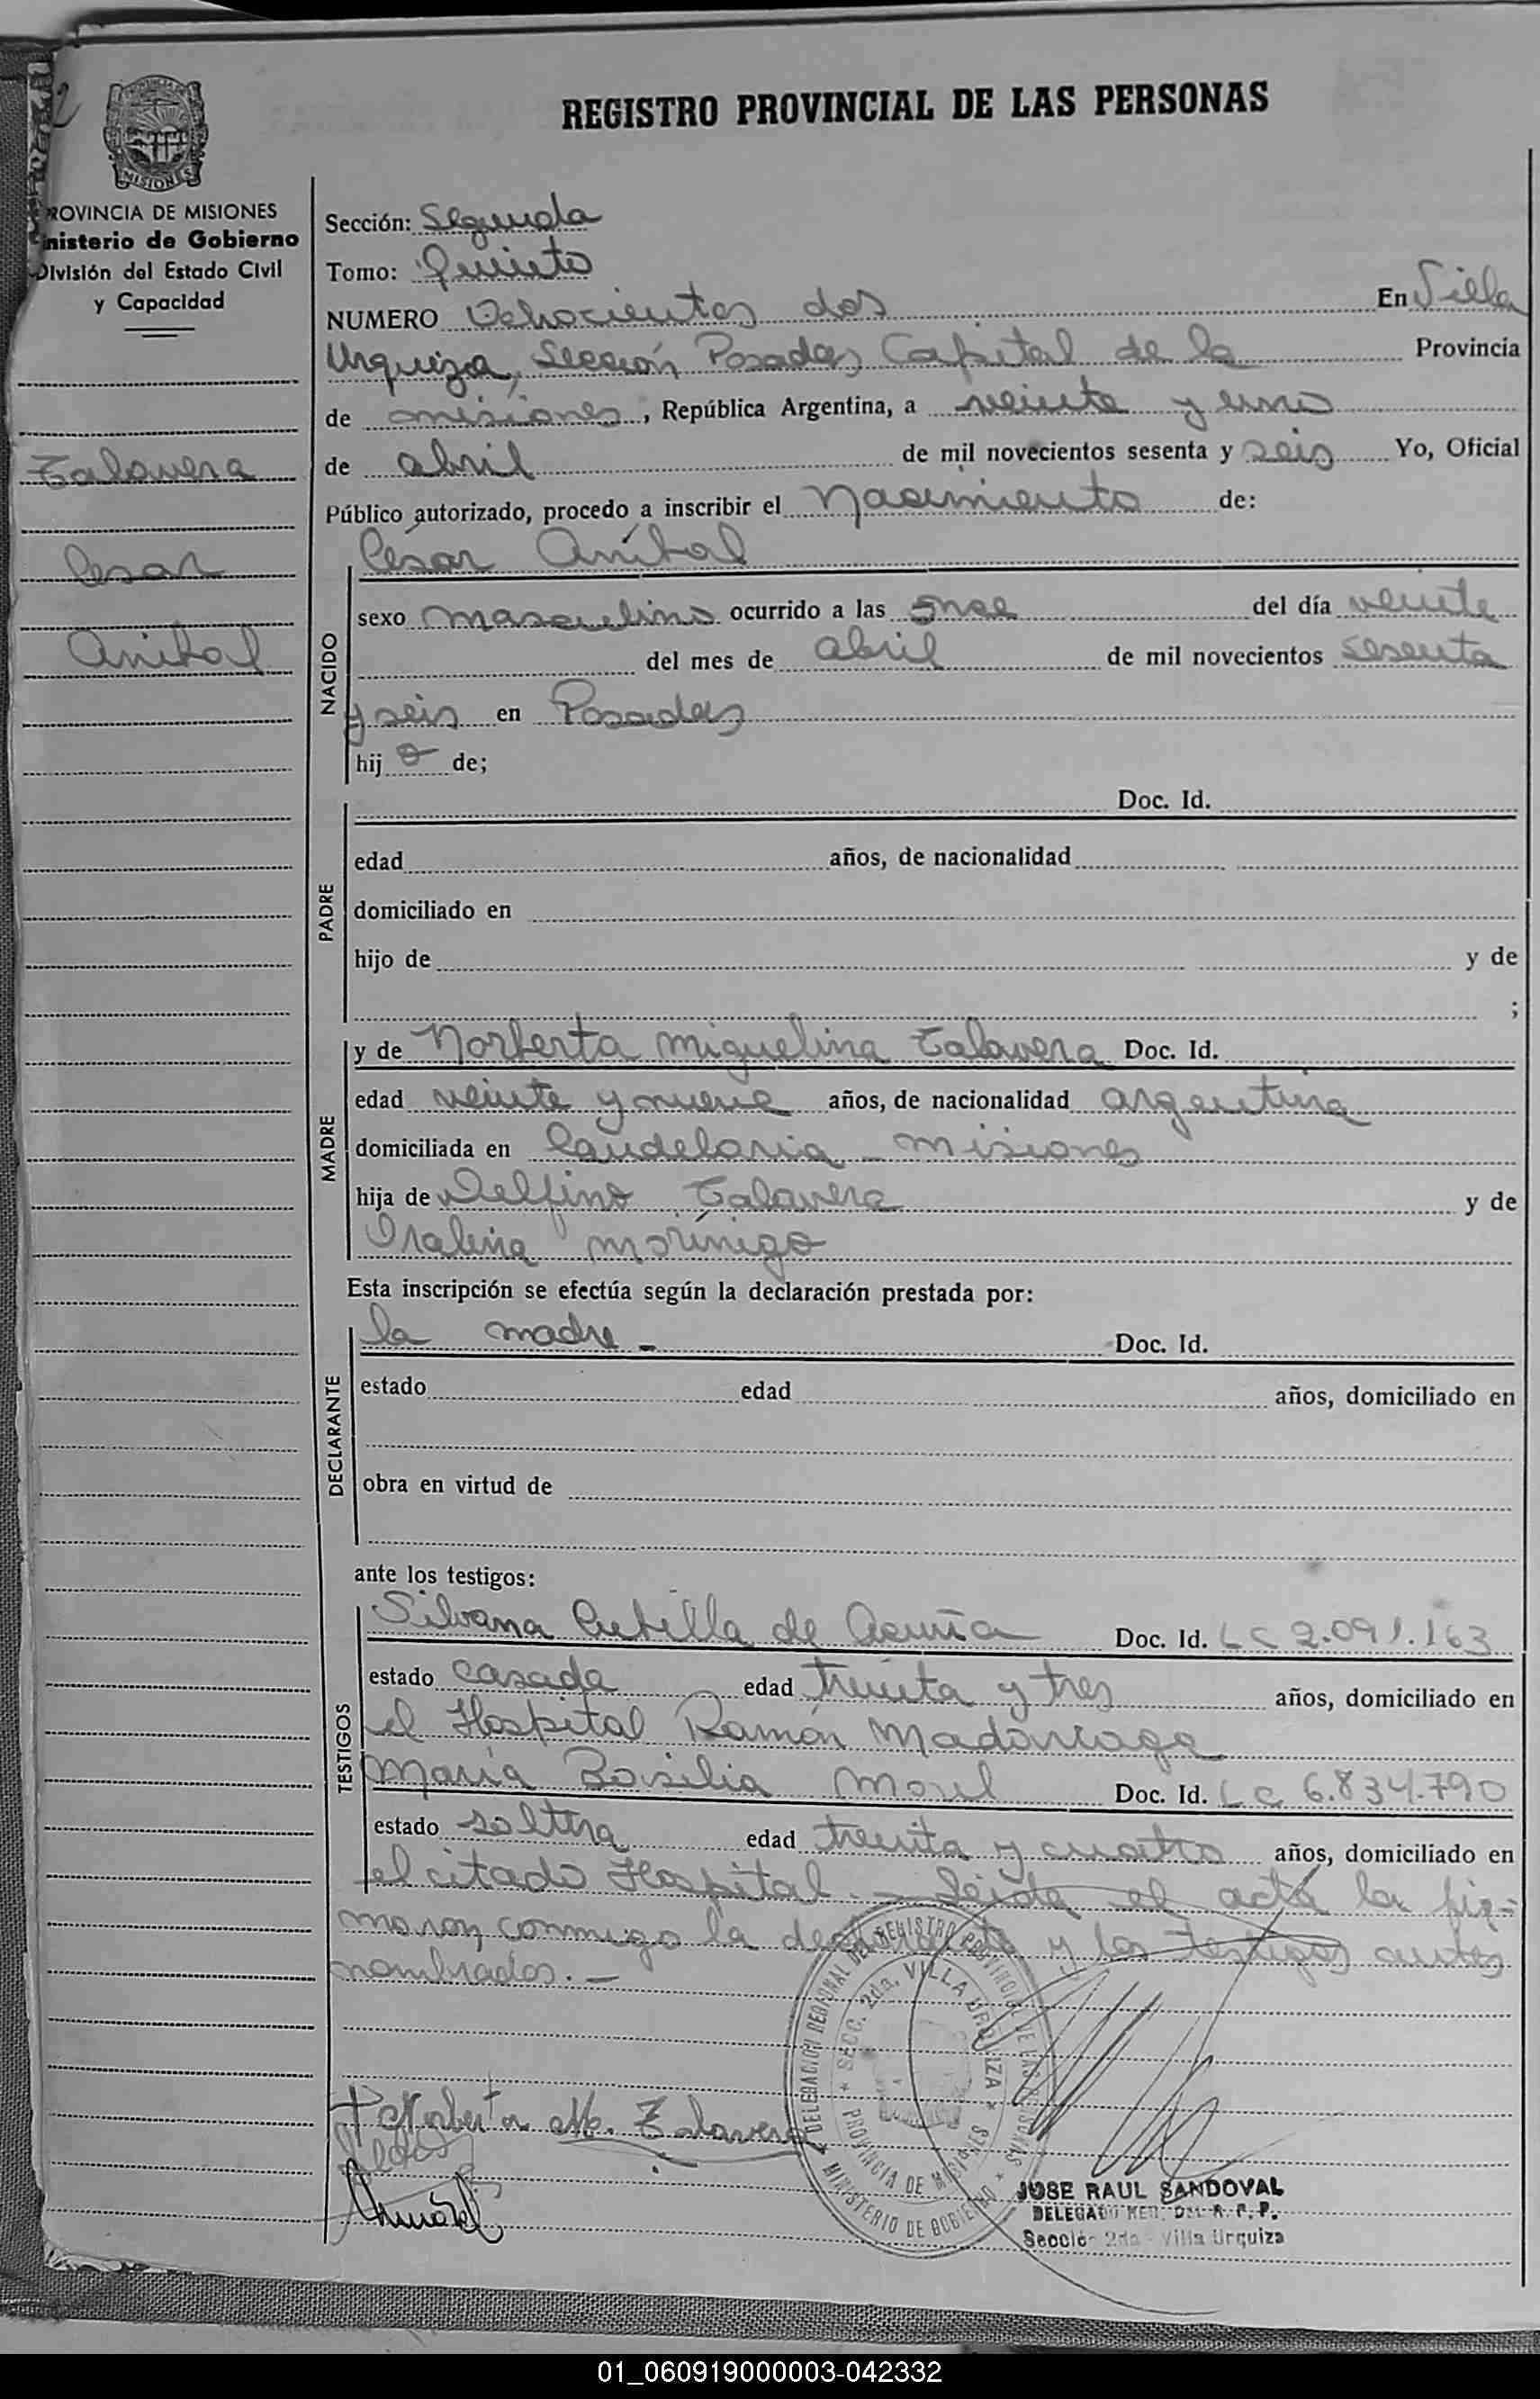 REGISTRO PROVINCIAL DE LAS PERSONAS
MISIONES
PROVINCIA DE MISIONES
nisterio de Gobierno
División del Estado Civil
y Capacidad
Talavera
Cesar
Anibal
Sección: Segunda
Tomo: Quinto
NUMERO Ochocientos dos En Villa
Urquiza, Sección Posadas Capital de la Provincia
de misiones, República Argentina, a veinte y uno
de abril de mil novecientos sesenta y seis Yo, Oficial
Público autorizado, procedo a inscribir el Nacimiento de:
NACIDO
César Aníbal
sexo masculino ocurrido a las onse del día veinte
del mes de abril de mil novecientos sesenta
y seis en Posadas
hij o de;
PADRE
Doc. Id.
edad años, de nacionalidad
domiciliado en
hijo de y de
;
MADRE
y de Norberta Miguelina Talavera Doc. Id.
edad veinte y nueve años, de nacionalidad argentina
domiciliada en Candelaria - misiones
hija de Delfino Talavera y de
morinigo
Esta inscripción se efectúa según la declaración prestada por:
DECLARANTE
la madre - Doc. Id.
estado edad años, domiciliado en
obra en virtud de
ante los testigos:
TESTIGOS
Silvana de Acuña Doc. Id. LC 2.091.163
estado casada edad treinta y tres años, domiciliado en
el Hospital Ramón Madariaga
María Doc. Id. LC 6.834.790
estado soltera edad treinta y cuatro años, domiciliado en
el citado Hospital. - Leida el acta la fir-
maron conmigo la declarante y los testigos antes
nombrados. -
DELEGACION REGIONAL DEL REGISTRO PROVINCIAL DE LAS PERSONAS
* SECC. 2da. VILLA URQUIZA *
PROVINCIA DE MISIONES
* MINISTERIO DE GOBIERNO *
Norberta M. Talavera
JOSE RAUL SANDOVAL
DELEGADO REG. DEL R. P. P.
Sección 2da - Villa Urquiza
01_060919000003-042332